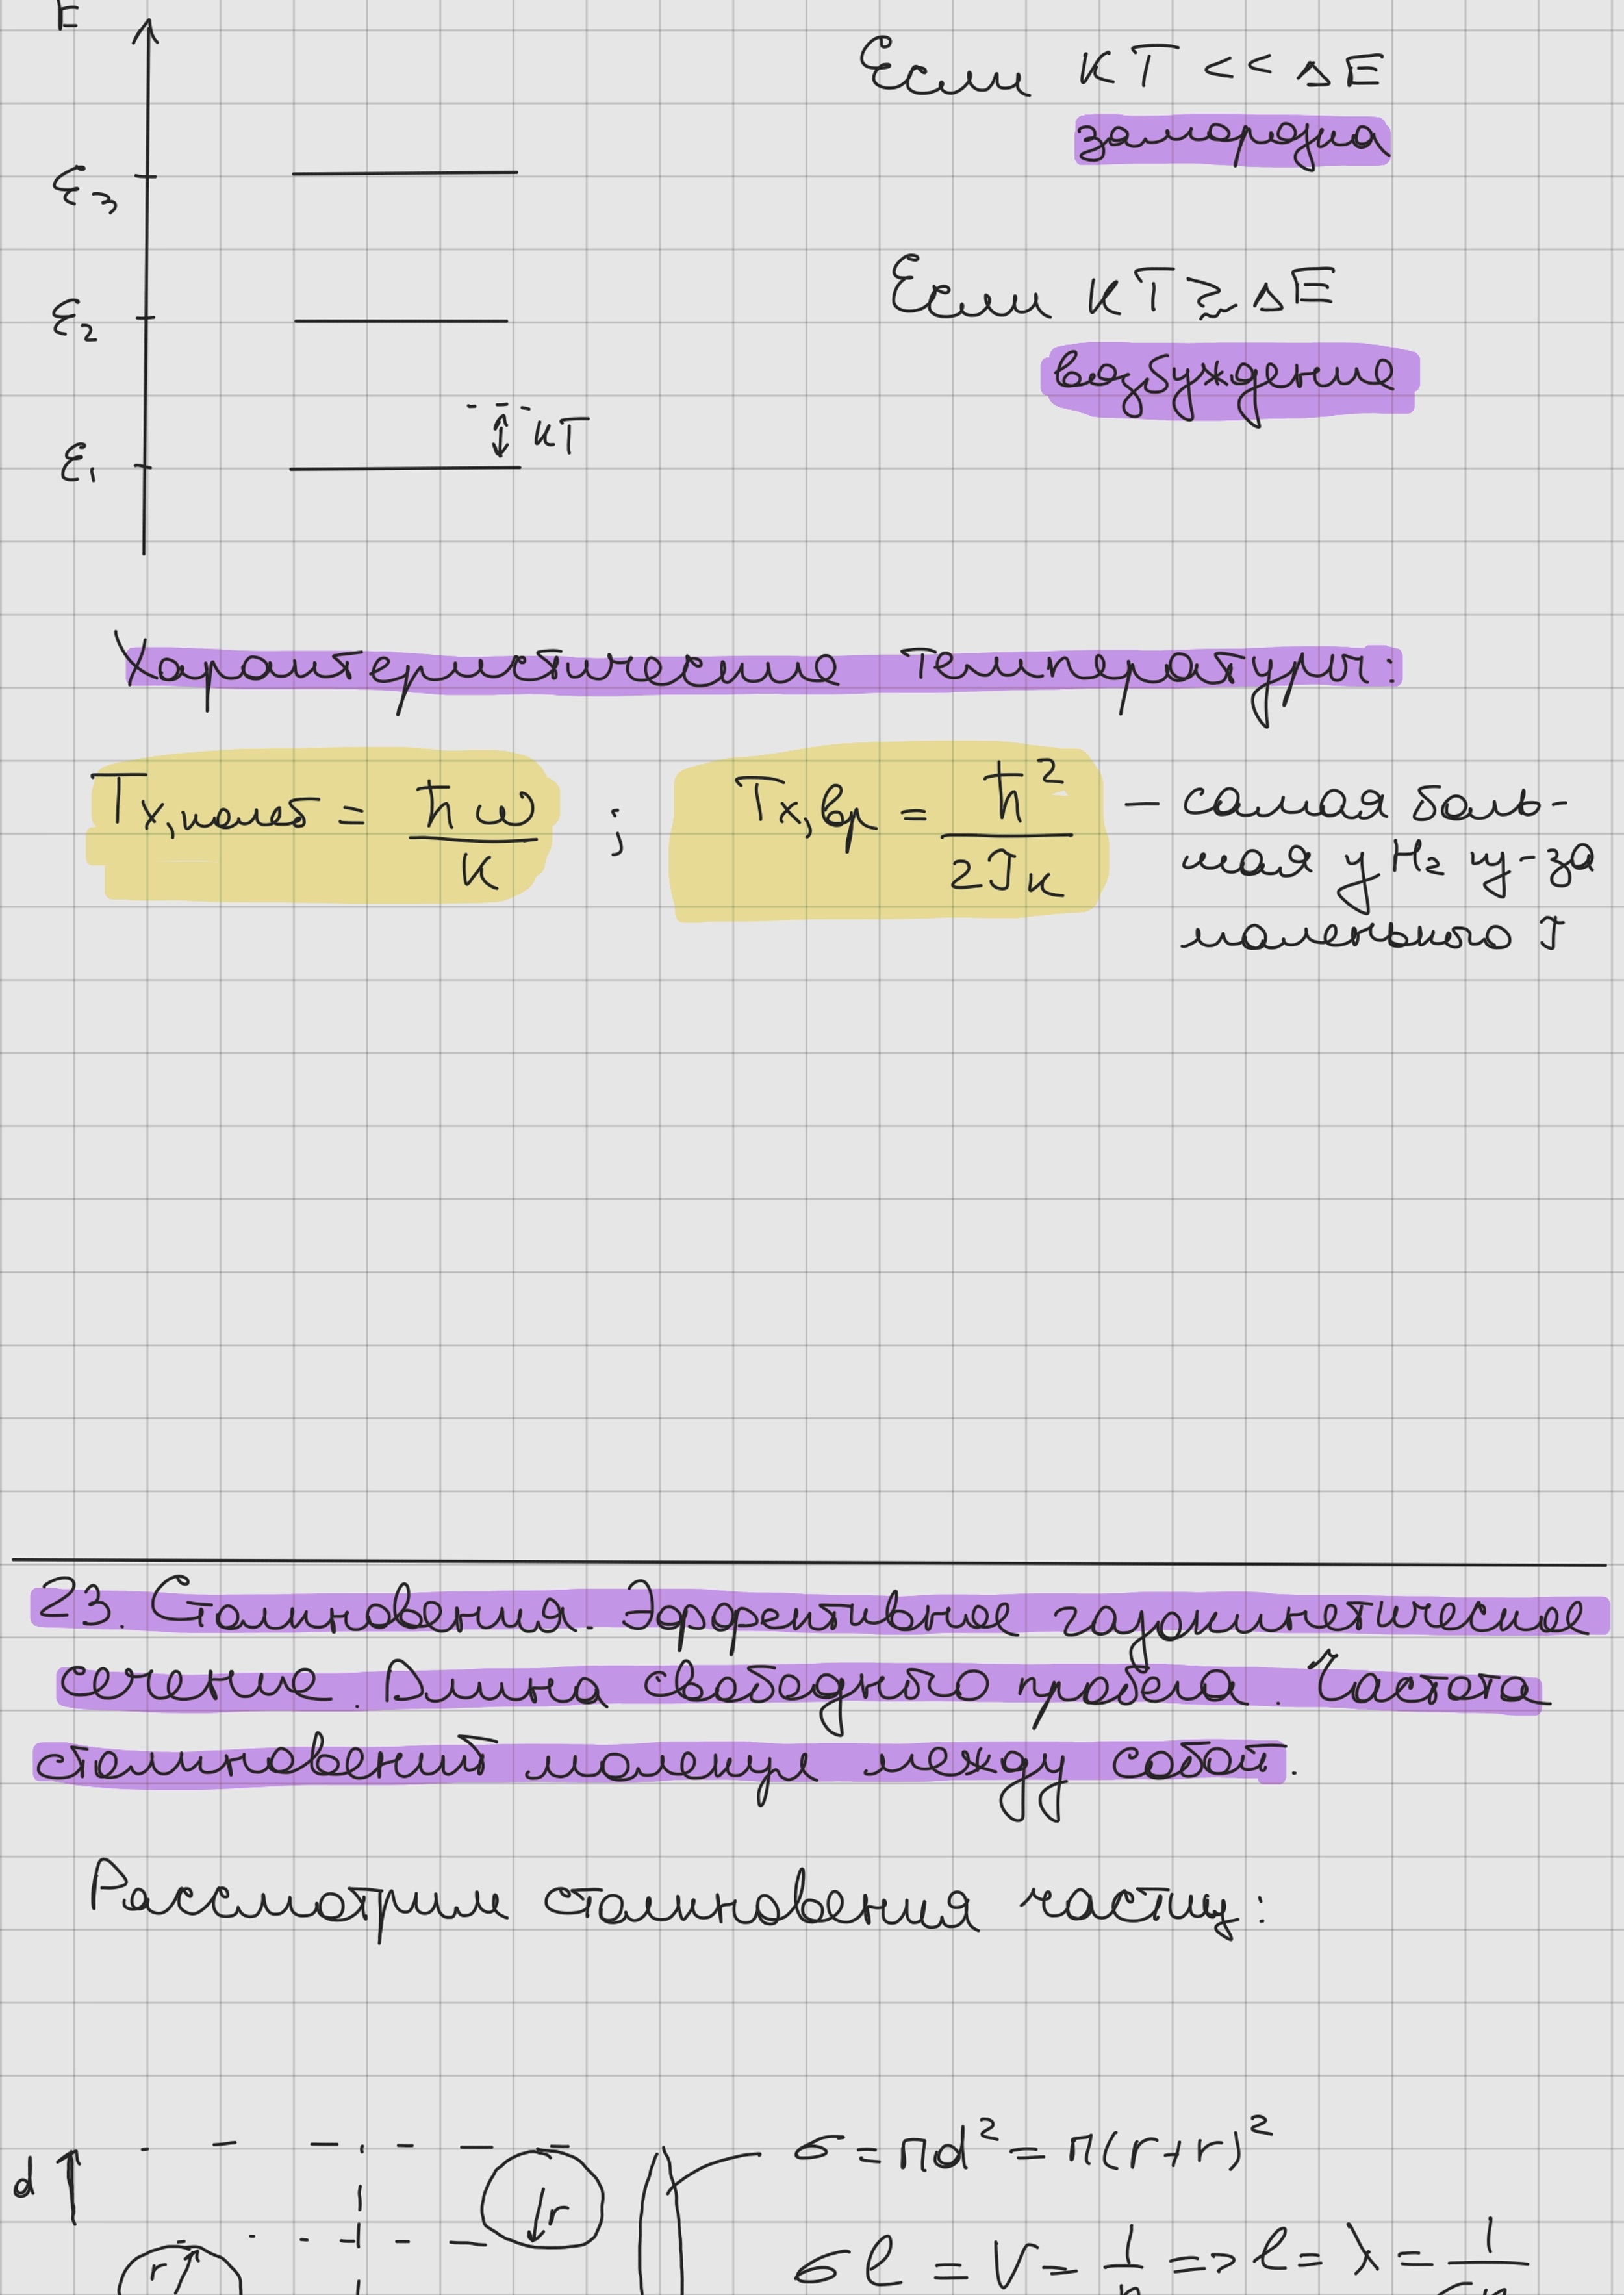 E
Если KT << ΔE
замородка
ε₃
Если KT ≳ ΔE
ε₂
возбуждение
KT
ε₁
Характеристические температуры:
Tx,колеб = ħω / K ; Tx,вр = ħ² / 2JK – самая боль-
шая у H₂ из-за
маленького J
23. Столкновения. Эффективное газокинетическое
сечение. Длина свободного пробега. Частота
столкновений молекул между собой.
Рассмотрим столкновения частиц:
σ = πd² = π(r+r)²
d
r
r
σl = V = 1/n => l = λ = 1/σn